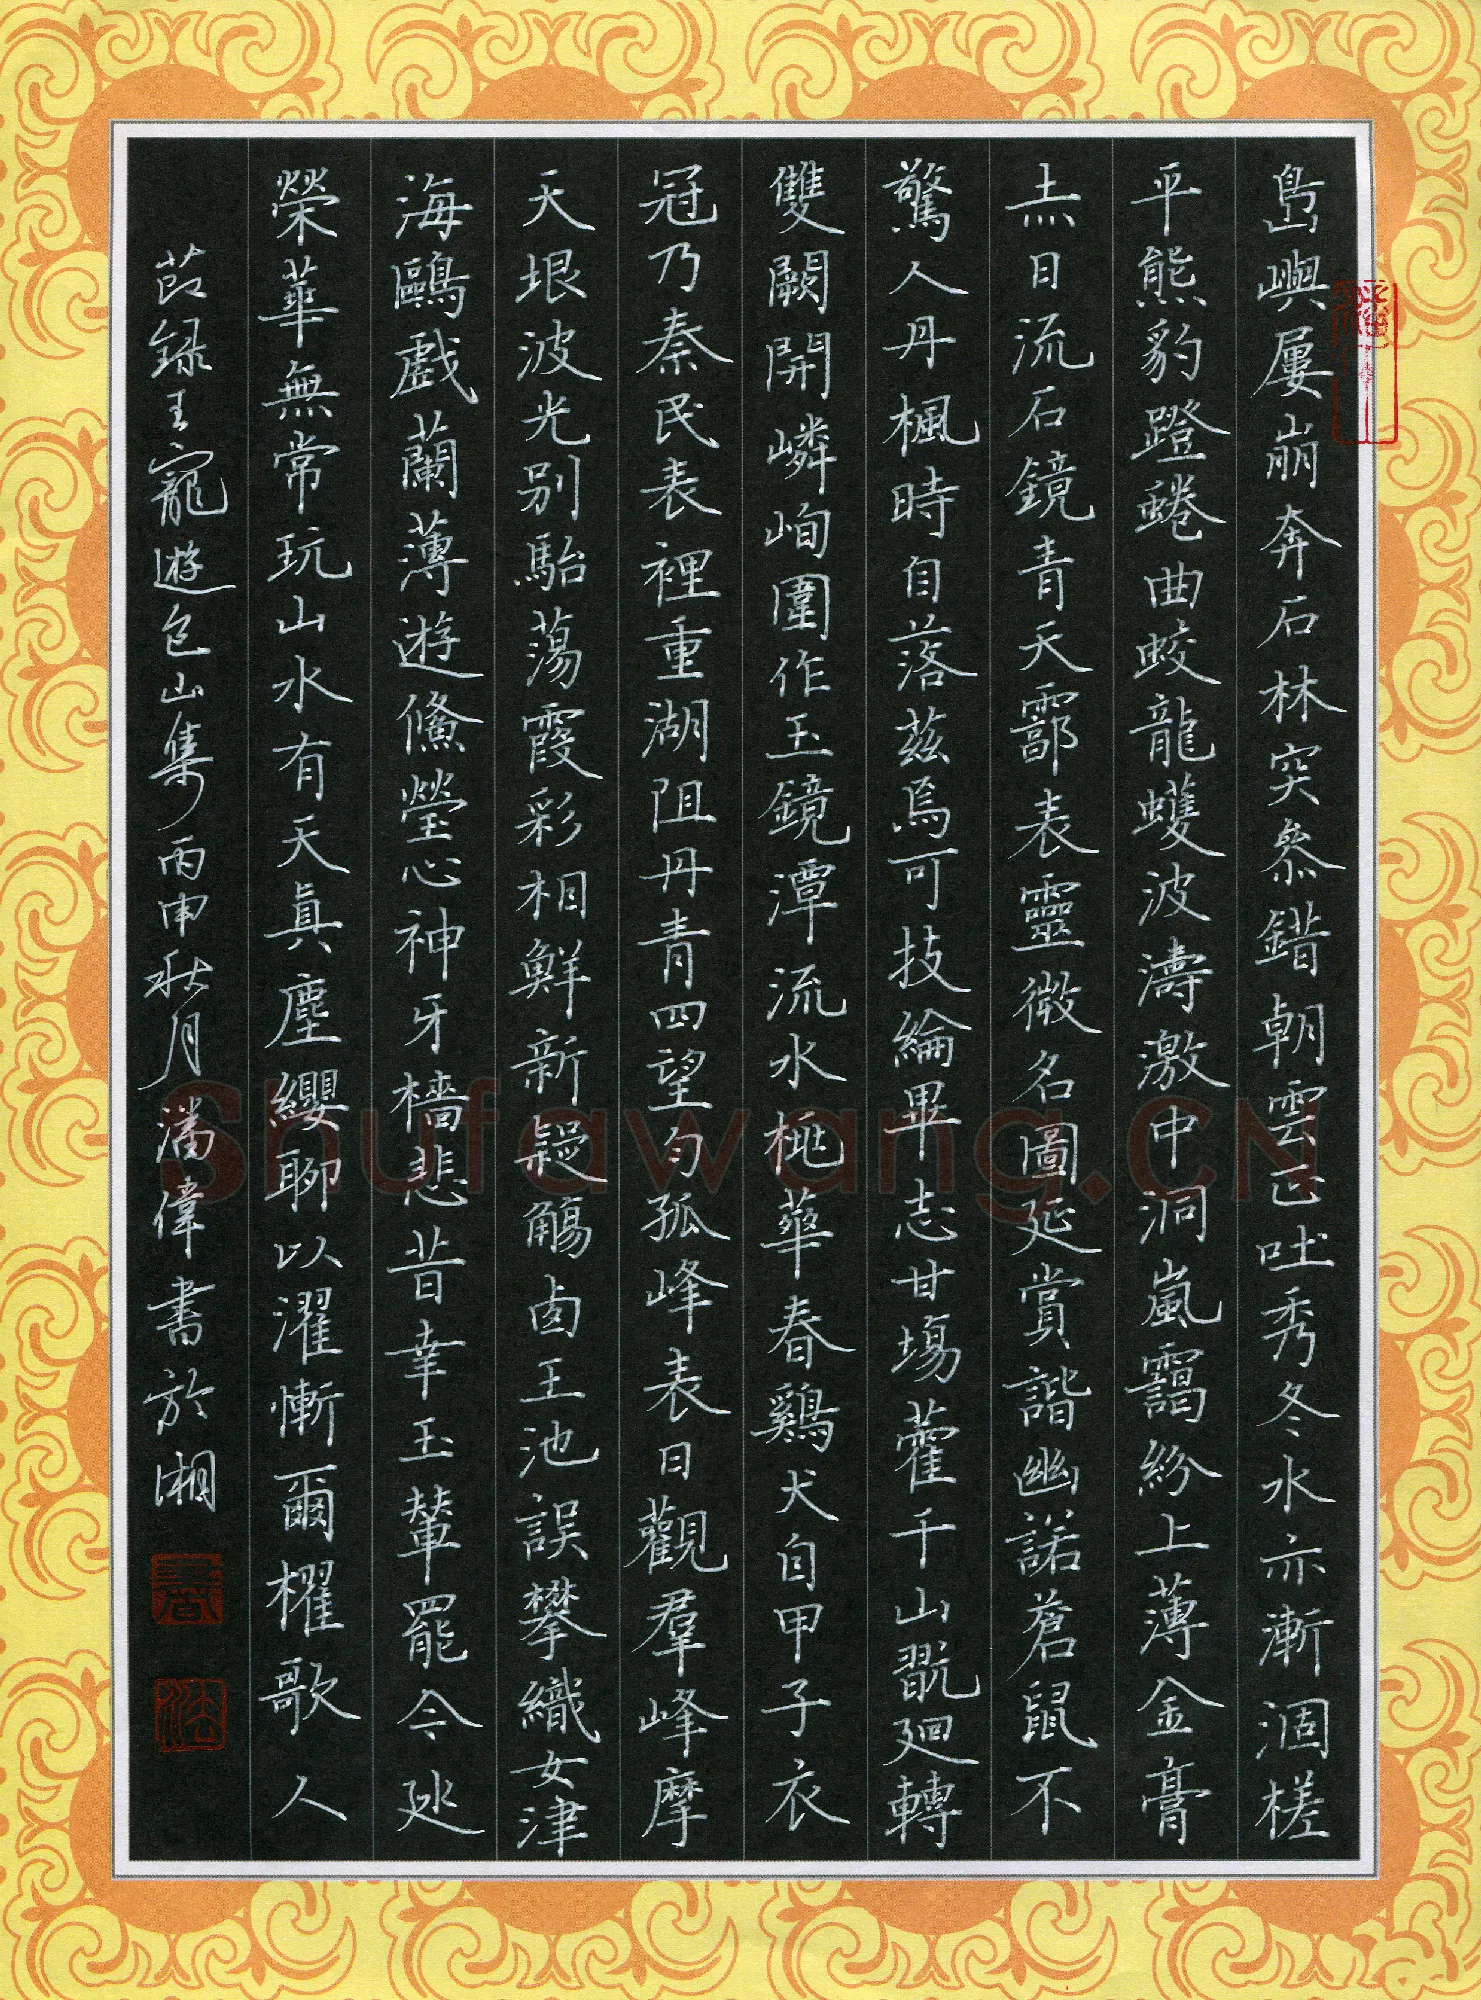 島嶼屢崩奔石林突叅錯朝雲已吐秀冬水亦漸涸槎
平熊豹蹬蜷曲蛟龍蠖波濤激中洞嵐靄紛上薄金膏
日流石鏡青天鄠表靈徵名圖延賞諧幽諾蒼鼠不
驚人丹楓時自落茲焉可技綸畢志甘場藿千山翫迴轉
雙闕開嶙峋圍作玉鏡潭流水桃華春鷄犬自甲子衣
冠乃秦民表裡重湖阻丹青四望勻孤峰表日觀羣峰摩
天垠波光別駘蕩霞彩相鮮新疑觴王池誤攀織女津
海鷗戲蘭薄遊鯈瑩心神牙檣悲昔幸玉輦罷今巡
榮華無常玩山水有天真塵纓聊以濯慚爾櫂歌人
節錄王寵遊包山集丙申秋月潘偉書於湘
Shufawang.CN